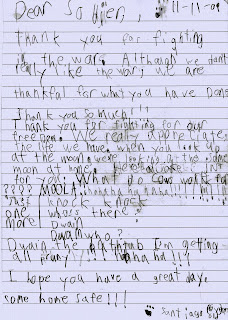 Dear Soldier, 11-11-09
Thank you for fighting
in the war. Although we don't
really like the war, we are
thankful for what you have done
Thank you so much!!!
Thank you for fighting for our
freedom. We really appreciate
the life we have, when you look up
at the moon, were looking at the same
moon at time. Here a joke
for you: What do cows work for
???? MOOLA! hahaha ha haha!!!
knock knock
one whos there
more! Dwain
Dwain who?
Dwain the bathtub I'm getting
all pruny!!! hahaha!!?
I hope you have a great day,
come home safe!!!
Santiago